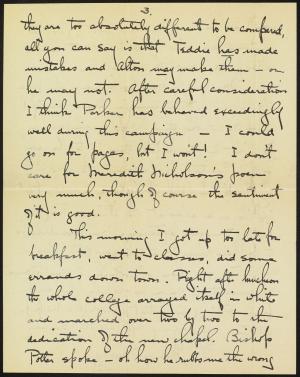 3.
they are too absolutely different to be compared,
all you can say is that Teddie has made
mistakes and Alton may make them – or
he may not. After careful consideration
I think Parker has behaved exceedingly
well during this campaign – I could
go on for pages, but I won't! I don't
care for Meredith Nicholson's poem
very much, though of course the sentiment
of it is good.
This morning I got up too late for
breakfast, went to classes, did some
errands down town. Right after luncheon
the whole college arrayed itself in white
and marched over two by two to the
dedication of the new chapel. Bishop
Potter spoke – oh how he rubbs me the wrong